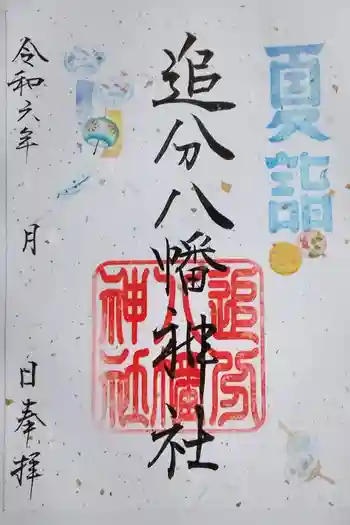 夏詣
追分八幡神社
追分
八幡
神社
令和六年
月
日奉拝